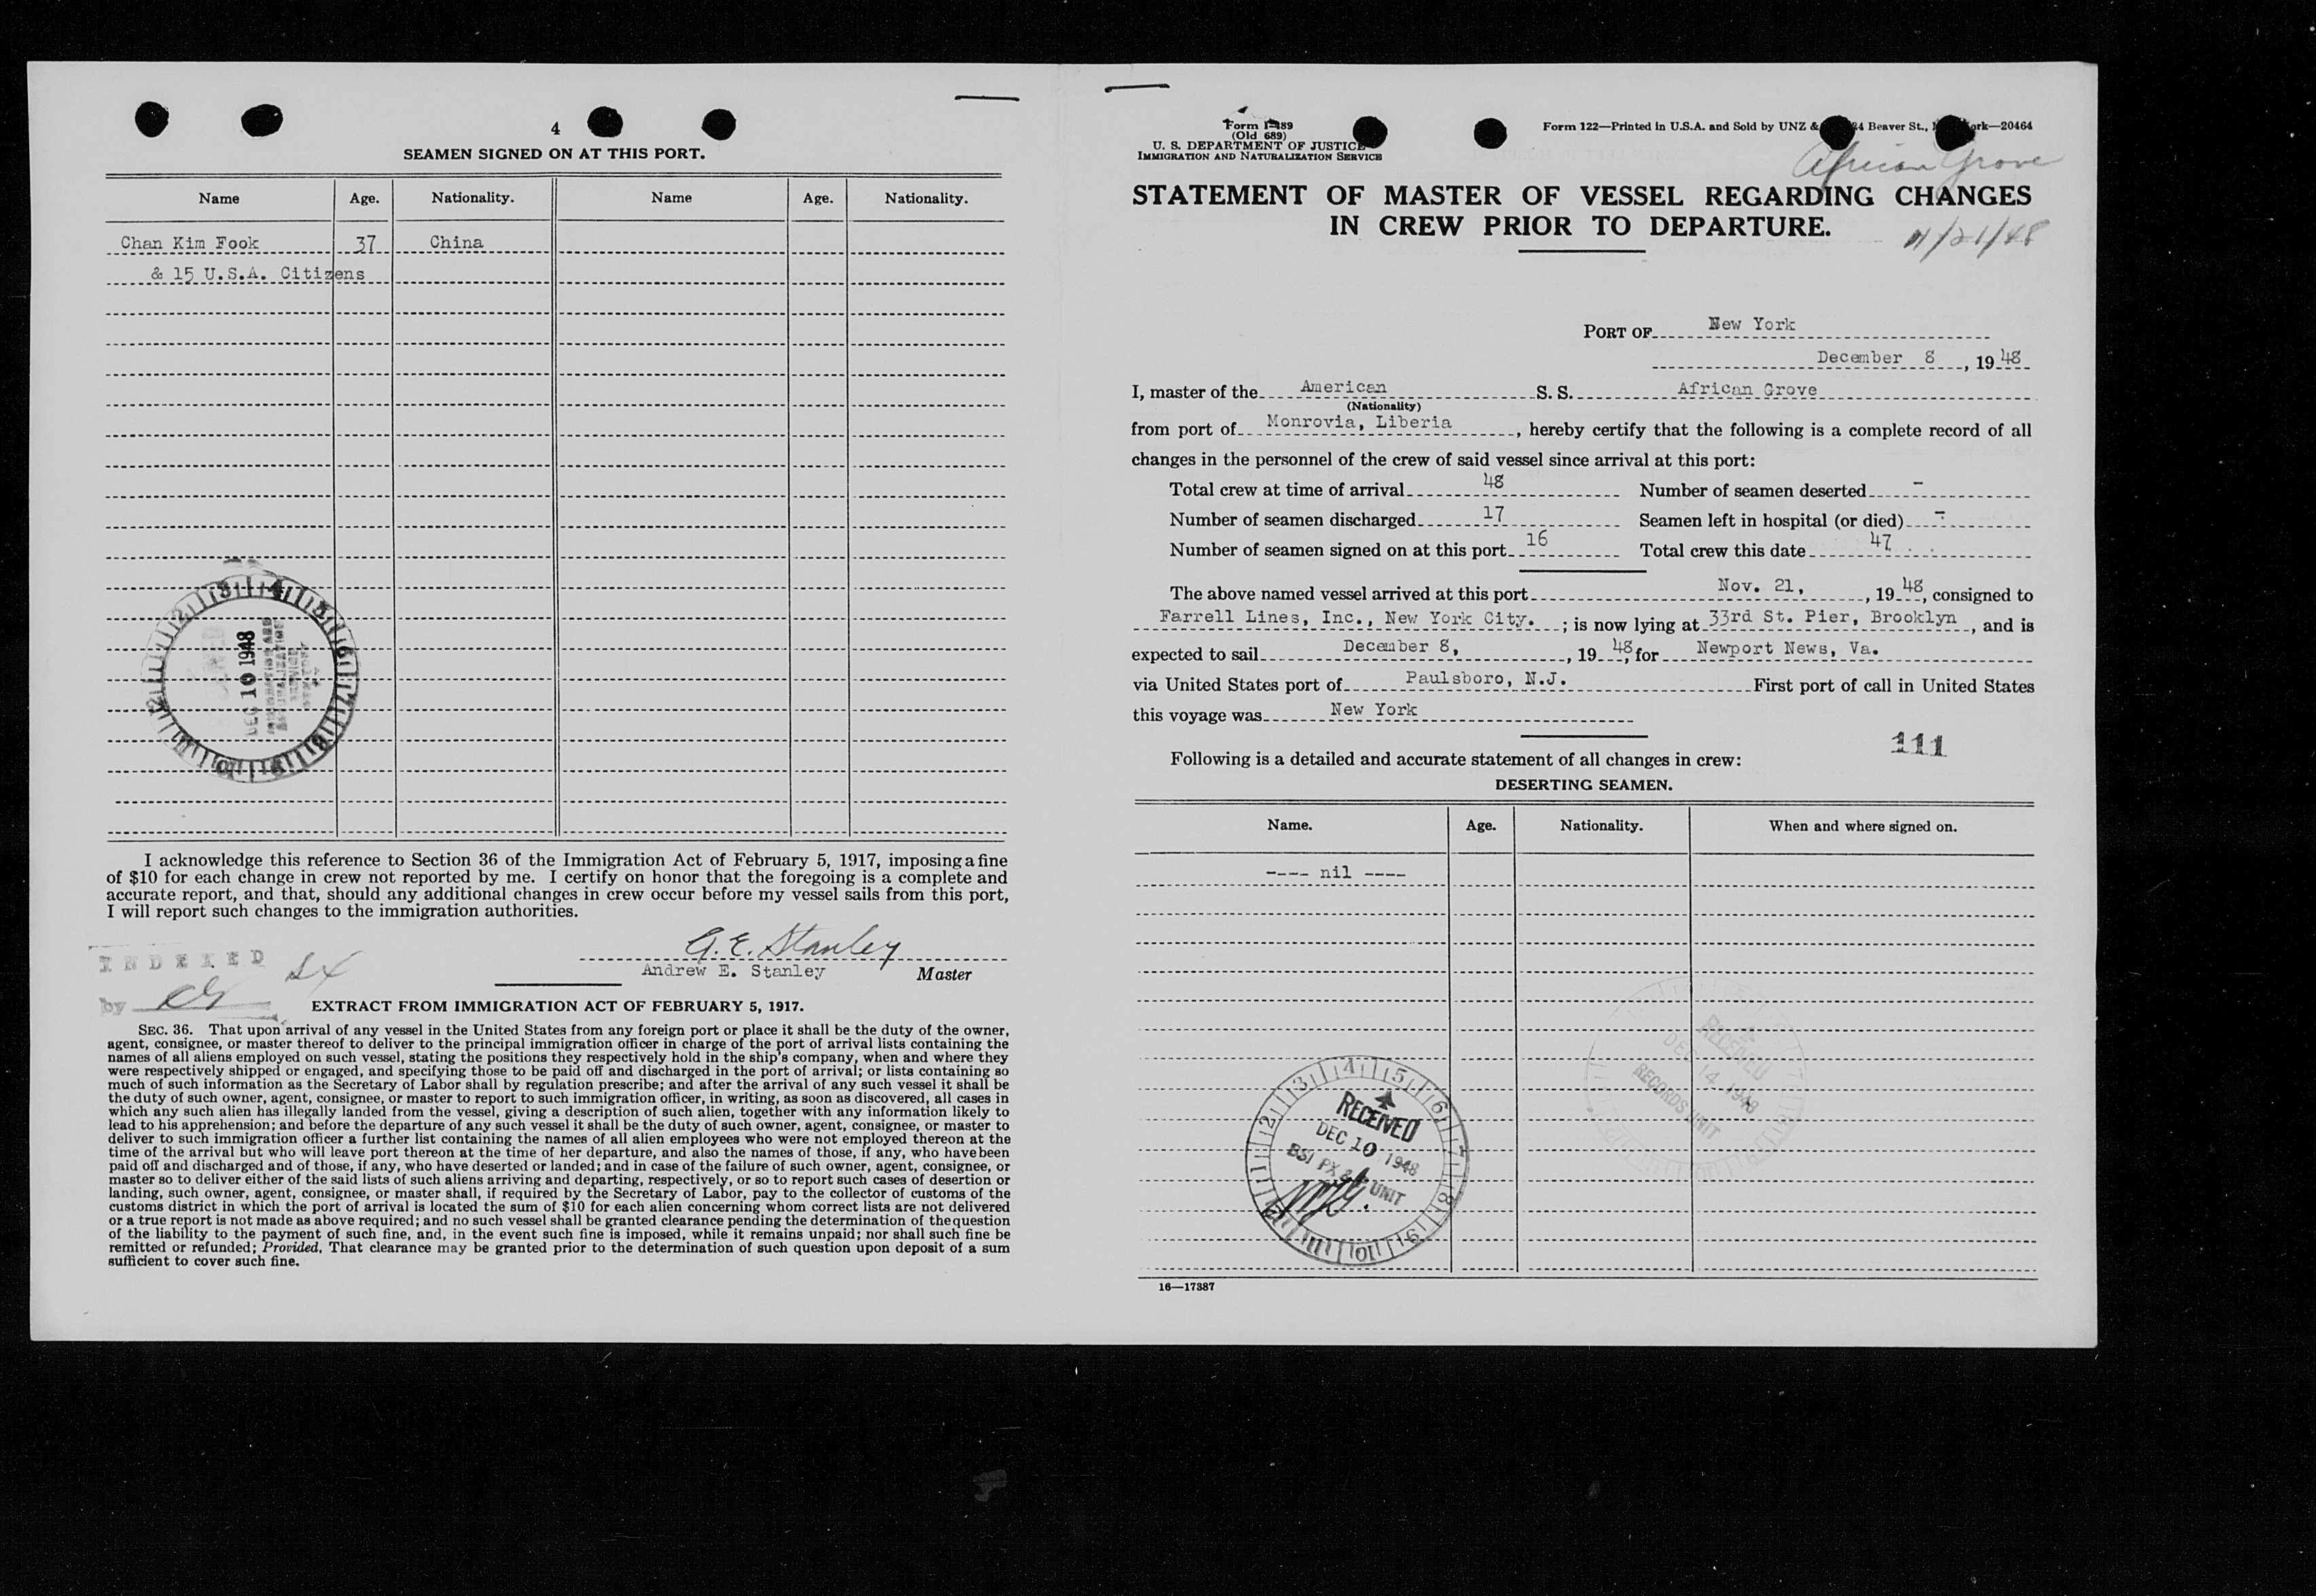 4
SEAMEN SIGNED ON AT THIS PORT.
Name Age. Nationality. Name Age. Nationality.
Chan Kim Fook 37 China
& 15 U.S.A. Citizens
DEC 10 1948
I acknowledge this reference to Section 36 of the Immigration Act of February 5, 1917, imposing a fine
of $10 for each change in crew not reported by me. I certify on honor that the foregoing is a complete and
accurate report, and that, should any additional changes in crew occur before my vessel sails from this port,
I will report such changes to the immigration authorities.
A. E. Stanley
Andrew E. Stanley Master
INDEXED
by
EXTRACT FROM IMMIGRATION ACT OF FEBRUARY 5, 1917.
SEC. 36. That upon arrival of any vessel in the United States from any foreign port or place it shall be the duty of the owner,
agent, consignee, or master thereof to deliver to the principal immigration officer in charge of the port of arrival lists containing the
names of all aliens employed on such vessel, stating the positions they respectively hold in the ship's company, when and where they
were respectively shipped or engaged, and specifying those to be paid off and discharged in the port of arrival; or lists containing so
much of such information as the Secretary of Labor shall by regulation prescribe; and after the arrival of any such vessel it shall be
the duty of such owner, agent, consignee, or master to report to such immigration officer, in writing, as soon as discovered, all cases in
which any such alien has illegally landed from the vessel, giving a description of such alien, together with any information likely to
lead to his apprehension; and before the departure of any such vessel it shall be the duty of such owner, agent, consignee, or master to
deliver to such immigration officer a further list containing the names of all alien employees who were not employed thereon at the
time of the arrival but who will leave port thereon at the time of her departure, and also the names of those, if any, who have been
paid off and discharged and of those, if any, who have deserted or landed; and in case of the failure of such owner, agent, consignee, or
master so to deliver either of the said lists of such aliens arriving and departing, respectively, or so to report such cases of desertion or
landing, such owner, agent, consignee, or master shall, if required by the Secretary of Labor, pay to the collector of customs of the
customs district in which the port of arrival is located the sum of $10 for each alien concerning whom correct lists are not delivered
or a true report is not made as above required; and no such vessel shall be granted clearance pending the determination of the question
of the liability to the payment of such fine, and, in the event such fine is imposed, while it remains unpaid; nor shall such fine be
remitted or refunded; Provided, That clearance may be granted prior to the determination of such question upon deposit of a sum
sufficient to cover such fine.
Form I-489
(Old 689)
U. S. DEPARTMENT OF JUSTICE
IMMIGRATION AND NATURALIZATION SERVICE
Form 122—Printed in U.S.A. and Sold by UNZ & Beaver St., 20464
African Grove
STATEMENT OF MASTER OF VESSEL REGARDING CHANGES
IN CREW PRIOR TO DEPARTURE.
11/21/48
PORT OF New York
December 8, 1948
I, master of the American S. S. African Grove
(Nationality)
from port of Monrovia, Liberia, hereby certify that the following is a complete record of all
changes in the personnel of the crew of said vessel since arrival at this port:
Total crew at time of arrival 48 Number of seamen deserted -
Number of seamen discharged 17 Seamen left in hospital (or died) -
Number of seamen signed on at this port 16 Total crew this date 47
The above named vessel arrived at this port Nov. 21, , 1948, consigned to
Farrell Lines, Inc., New York City. ; is now lying at 33rd St. Pier, Brooklyn, and is
expected to sail December 8, , 1948, for Newport News, Va.
via United States port of Paulsboro, N.J. First port of call in United States
this voyage was New York
111
Following is a detailed and accurate statement of all changes in crew:
DESERTING SEAMEN.
Name. Age. Nationality. When and where signed on.
---- nil ----
RECEIVED
DEC 14 1948
RECORDS UNIT
RECEIVED
DEC 10 1948
BSI PX & UNIT
16—17387